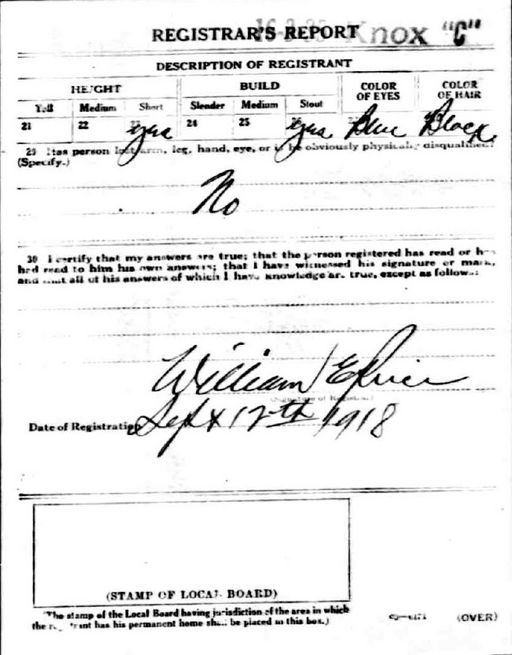 REGISTRAR'S REPORT Knox "C"
DESCRIPTION OF REGISTRANT
HEIGHT BUILD COLOR OF EYES COLOR OF HAIR
Tall Medium Short Slender Medium Stout
21 22 yes 24 25 yes Blue Black
29 Has person lost arm, leg, hand, eye, or is he obviously physically disqualified?
(Specify.)
No
30 I certify that my answers are true; that the person registered has read or has
had read to him his own answers; that I have witnessed his signature or mark,
and that all of his answers of which I have knowledge are true, except as follows:
William E
(Signature of Registrar)
Date of Registration Sept 12th 1918
(STAMP OF LOCAL BOARD)
(The stamp of the Local Board having jurisdiction of the area in which
the registrant has his permanent home shall be placed in this box.)
(OVER)